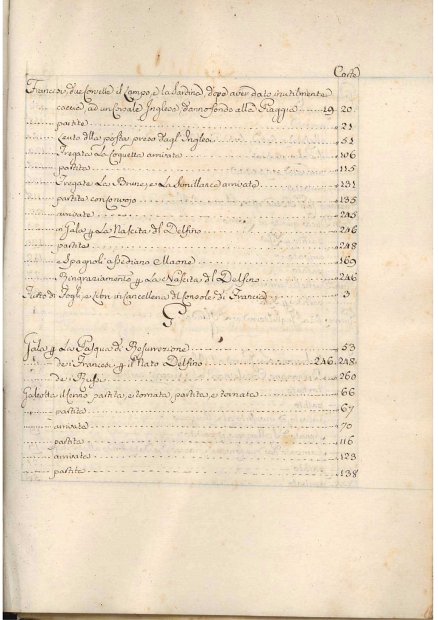 Carte
Francesi due Corvette il Campo, e la Sardina, dopo aver dato inutilmente
caccia, ad un Corsale Inglese danno fondo alla Piaggia 19. 20
partite 21
Cento della posta preso dagl' Inglesi 51
Fregata La Coquette arrivata 106
partita 115
Fregate La Brune, e La arrivate 131
partite con Convojo 135
arrivate 245
in Gala p La Nascita del Delfino 246
partite 248
e Spagnoli assediano Maone 169
Ringraziamento p La Nascita del Delfino 246
Furto di Fogli, e Libri in Cancelleria del Console di Francia 3
G
Gala p La Pasqua di Resurrezione 53
de' Francesi p il Nato Delfino 246. 248
de' Russi 260
Galeotta il partita, e tornata, partita, e tornata 66
partita 67
arrivata 70
partita 116
arrivata 123
partita 138